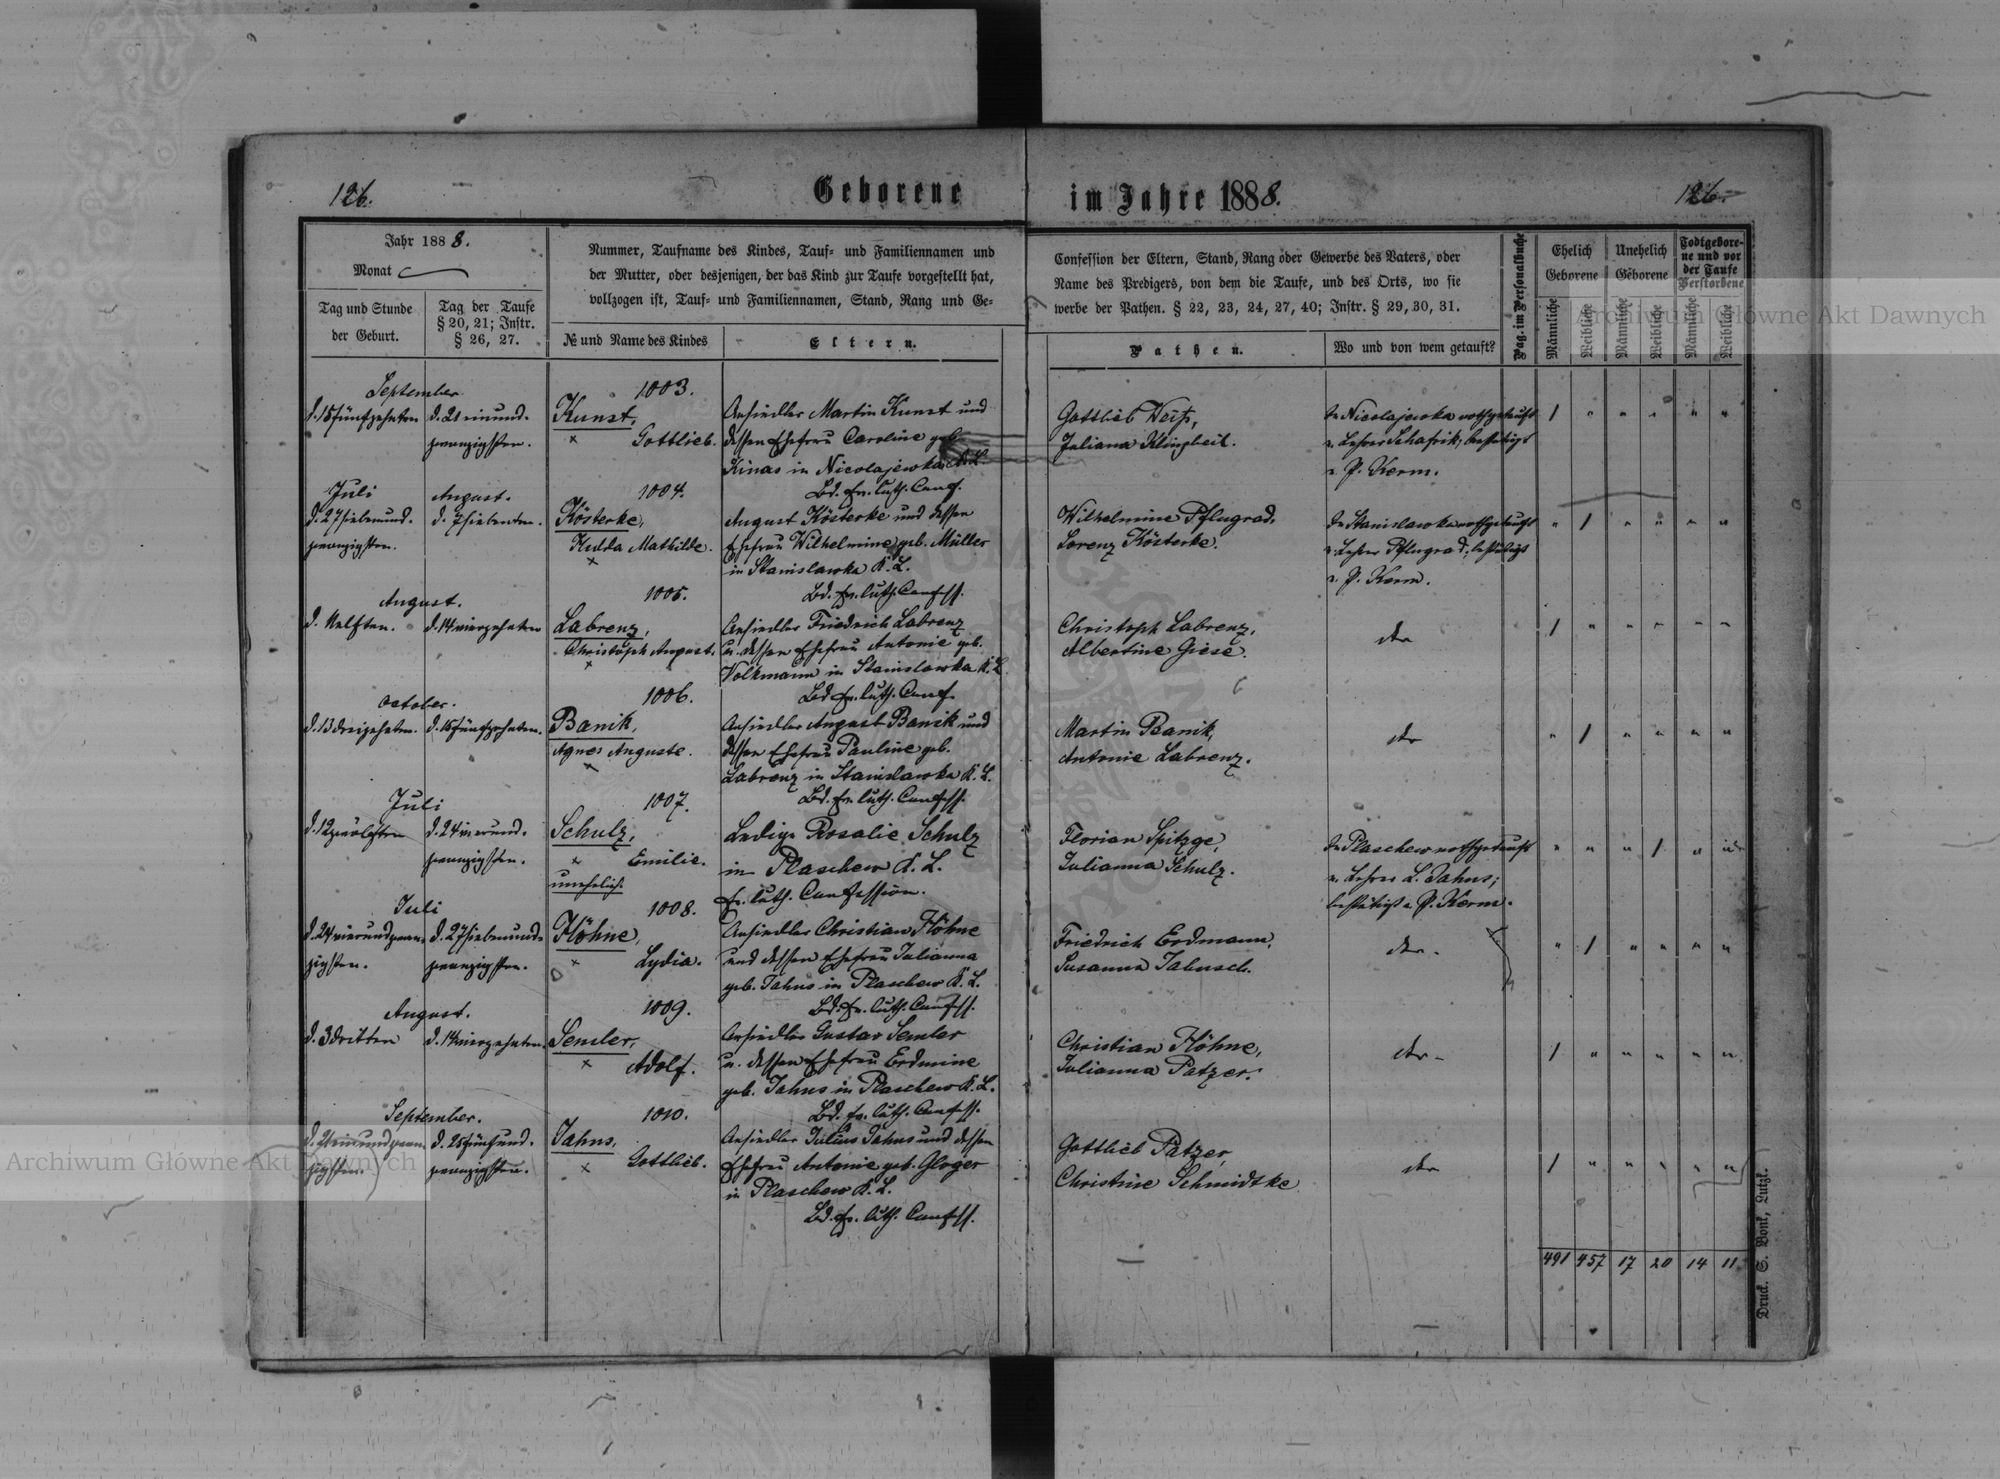 126.
Geborene
im Jahre 1888.
126.
Jahr 188 8.
Monat
Tag und Stunde
der Geburt.
Tag der Taufe
§ 20, 21; Instr.
§ 26, 27.
Nummer, Taufname des Kindes, Tauf- und Familiennamen und
der Mutter, oder desjenigen, der das Kind zur Taufe vorgestellt hat,
vollzogen ist, Tauf- und Familiennamen, Stand, Rang und Ge-
№ und Name des Kindes
Eltern.
Confession der Eltern, Stand, Rang oder Gewerbe des Vaters, oder
Name des Predigers, von dem die Taufe, und des Orts, wo sie
werbe der Pathen. § 22, 23, 24, 27, 40; Instr. § 29, 30, 31.
Pathen.
Wo und von wem getauft?
Pag. im Personalbuche
Ehelich
Geborene
Unehelich
Geborene
Todtgebore-
ne und vor
der Taufe
Verstorbene
Männliche
Weibliche
Männliche
Weibliche
Männliche
Weibliche
September
d. 15 fünfzehnten
d. 21 einund-
zwanzigsten.
1003.
Kunst,
× Gottlieb.
Ansiedler Martin Kunst und
dessen Ehefrau Caroline geb.
Kinas in Nicolajewka K. L.
Bd. Ev. luth. Conf.
Gottlieb Weiß,
Juliana Klingbeil.
In Nicolajewka nothgetauft
v. Lehrer Schafrik, bestätigt
v. P. Kerm.
1 " " " " "
Juli
d. 27 siebenund-
zwanzigsten.
August.
d. 7 siebenten.
1004.
Kösterke,
Hulda Mathilde.
×
August Kösterke und dessen
Ehefrau Wilhelmine geb. Müller
in Stanislawka K. L.
Bd. Ev. luth. Confess.
Wilhelmine Pflugrad,
Lorenz Kösterke.
In Stanislawka nothgetauft
v. Lehrer Pflugrad, bestätigt
v. P. Kerm.
" 1 " " " "
August.
d. 11 elften.
d. 14 vierzehnten
1005.
Labrenz,
Christoph August.
×
Ansiedler Friedrich Labrenz
u. dessen Ehefrau Antonie geb.
Volkmann in Stanislawka K. L.
Bd. Ev. luth. Conf.
Christoph Labrenz,
Albertine Giese.
dto
1 " " " " "
October.
d. 13 dreizehnten.
d. 15 fünfzehnten.
1006.
Banik,
Agnes Auguste.
×
Ansiedler August Banik und
dessen Ehefrau Pauline geb.
Labrenz in Stanislawka K. L.
Bd. Ev. luth. Confess.
Martin Banik,
Antonie Labrenz.
dto
" 1 " " " "
Juli
d. 12 zwölften
d. 24 vierund-
zwanzigsten.
1007.
Schulz,
× Emilie.
unehelich.
Ledige Rosalie Schulz
in Plaschew K. L.
Ev. luth. Confession.
Florian Spitzge,
Julianna Schulz.
In Plaschew nothgetauft
v. Lehrer L. Jahns;
bestätigt v. P. Kerm.
" " " 1 " "
Juli
d. 24 vierundzwan-
zigsten.
d. 27 siebenund-
zwanzigsten.
1008.
Höhne,
× Lydia.
Ansiedler Christian Höhne
und dessen Ehefrau Julianna
geb. Jahns in Plaschew K. L.
Bd. Ev. luth. Confess.
Friedrich Erdmann,
Susanna Jabusch.
dto.
" 1 " " " "
August.
d. 3 dritten
d. 14 vierzehnten.
1009.
Semler,
× Adolf.
Ansiedler Gustav Semler
u. dessen Ehefrau Erdmine
geb. Jahns in Plaschew K. L.
Bd. Ev. luth. Confess.
Christian Höhne,
Julianna Patzer.
dto
1 " " " " "
September.
d. 21 einundzwan-
zigsten.
d. 25 fünfund-
zwanzigsten.
1010.
Jahns,
× Gottlieb.
Ansiedler Julius Jahns und dessen
Ehefrau Antonie geb. Gloger
in Plaschew K. L.
Bd. Ev. luth. Confess.
Gottlieb Patzer,
Christine Schmidtke
dto
1 " " " " "
491 457 17 20 14 11
Druck. S. Bonk, Lutzk.
Archiwum Główne Akt Dawnych
Archiwum Główne Akt Dawnych